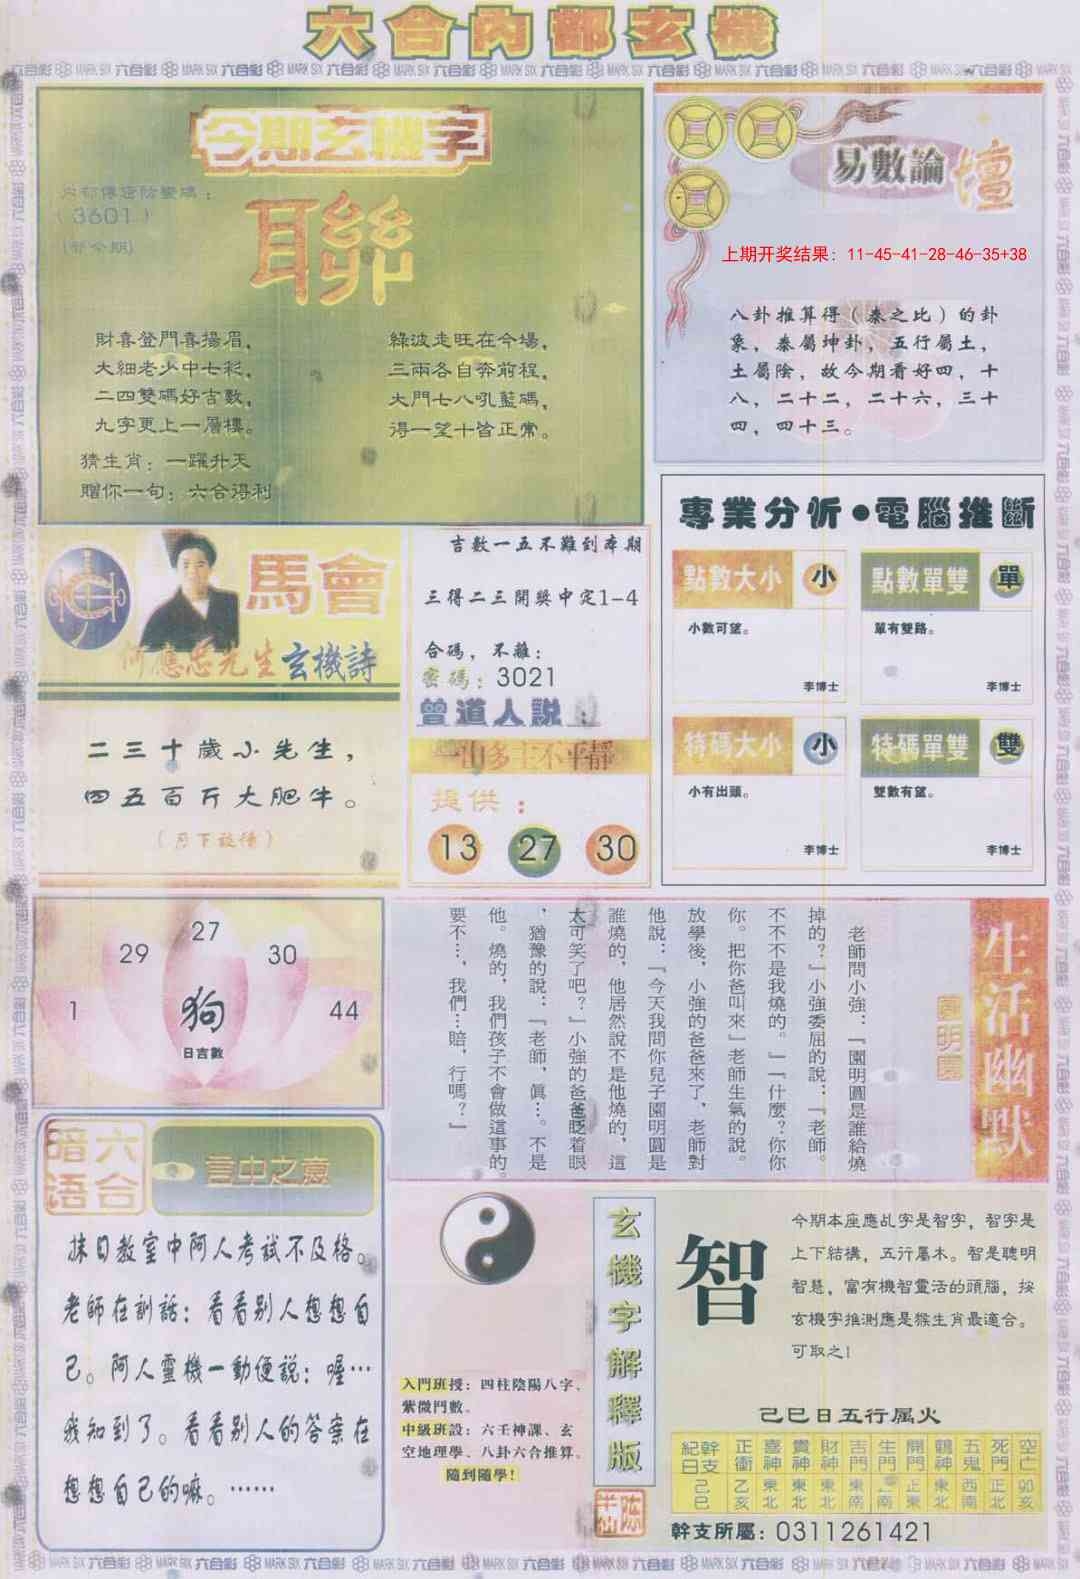 六合內部玄機
今期玄機字
內部傳密防獎碼：
（3601）
聯
財喜登門喜揚眉，
大細老少中七彩，
二四雙碼好吉數，
九字更上一層樓。
綠波走旺在今場，
三兩各自奔前程，
大門七八吼藍碼，
得一望十皆正常。
猜生肖：一躍升天
贈你一句：六合得利
易數論壇
上期开奖结果：11-45-41-28-46-35+38
八卦推算得（泰之比）的卦
象，泰屬坤卦，五行屬土，
土屬陰，故今期看好四，十
八，二十二，二十六，三十
四，四十三。
專業分析●電腦推斷
點數大小 小
小數可望。
李博士
點數單雙 單
單有雙路。
李博士
特碼大小 小
小有出頭。
李博士
特碼單雙 雙
雙數有望。
李博士
馬會
何應忠先生玄機詩
二三十歲小先生，
四五百斤大肥牛。
吉數一五不難到本期
三得二三開獎中定1-4
合碼，不離：
密碼：3021
曾道人説：
一山多主不平靜
提供：
13 27 30
1 29 27 30 44
狗
日吉數
生活幽默
老師問小強：『圓明圓是誰給燒
掉的？』小強委屈的說：『老師。
不不不是我燒的。』『什麼？你你
你。把你爸叫來』老師生氣的說。
放學後，小強的爸爸來了，老師對
他說：『今天我問你兒子圓明圓是
誰燒的，他居然說不是他燒的，這
太可笑了吧？』小強的爸爸眨着眼
，猶豫的說：『老師，眞…。不是
他。燒的，我們孩子不會做這事的。
要不…，我們…賠，行嗎？』
六合暗语
言中之意
抹日教室中阿人考試不及格。
老師在訓話：看看别人想想自
己。阿人靈機一動便說：喔…
我知到了。看看别人的答案在
想想自己的嘛。……
入門班授：四柱陰陽八字、
紫微門數。
中級班設：六壬神課、玄
空地理學、八卦六合推算。
隨到隨學！
玄機字解釋版
智
今期本座應乩字是智字，智字是
上下結構，五行屬木。智是聰明
智慧，富有機智靈活的頭腦，按
玄機字推測應是猴生肖最適合。
可取之！
己巳日五行属火
紀日 幹支 正衝 喜神 貴神 財神 吉門 生門 開門 鶴神 五鬼 死門 空亡
己巳 乙亥 東北 東北 東北 東南 正南 正東 東北 西南 正北 卯亥
幹支所屬：0311261421